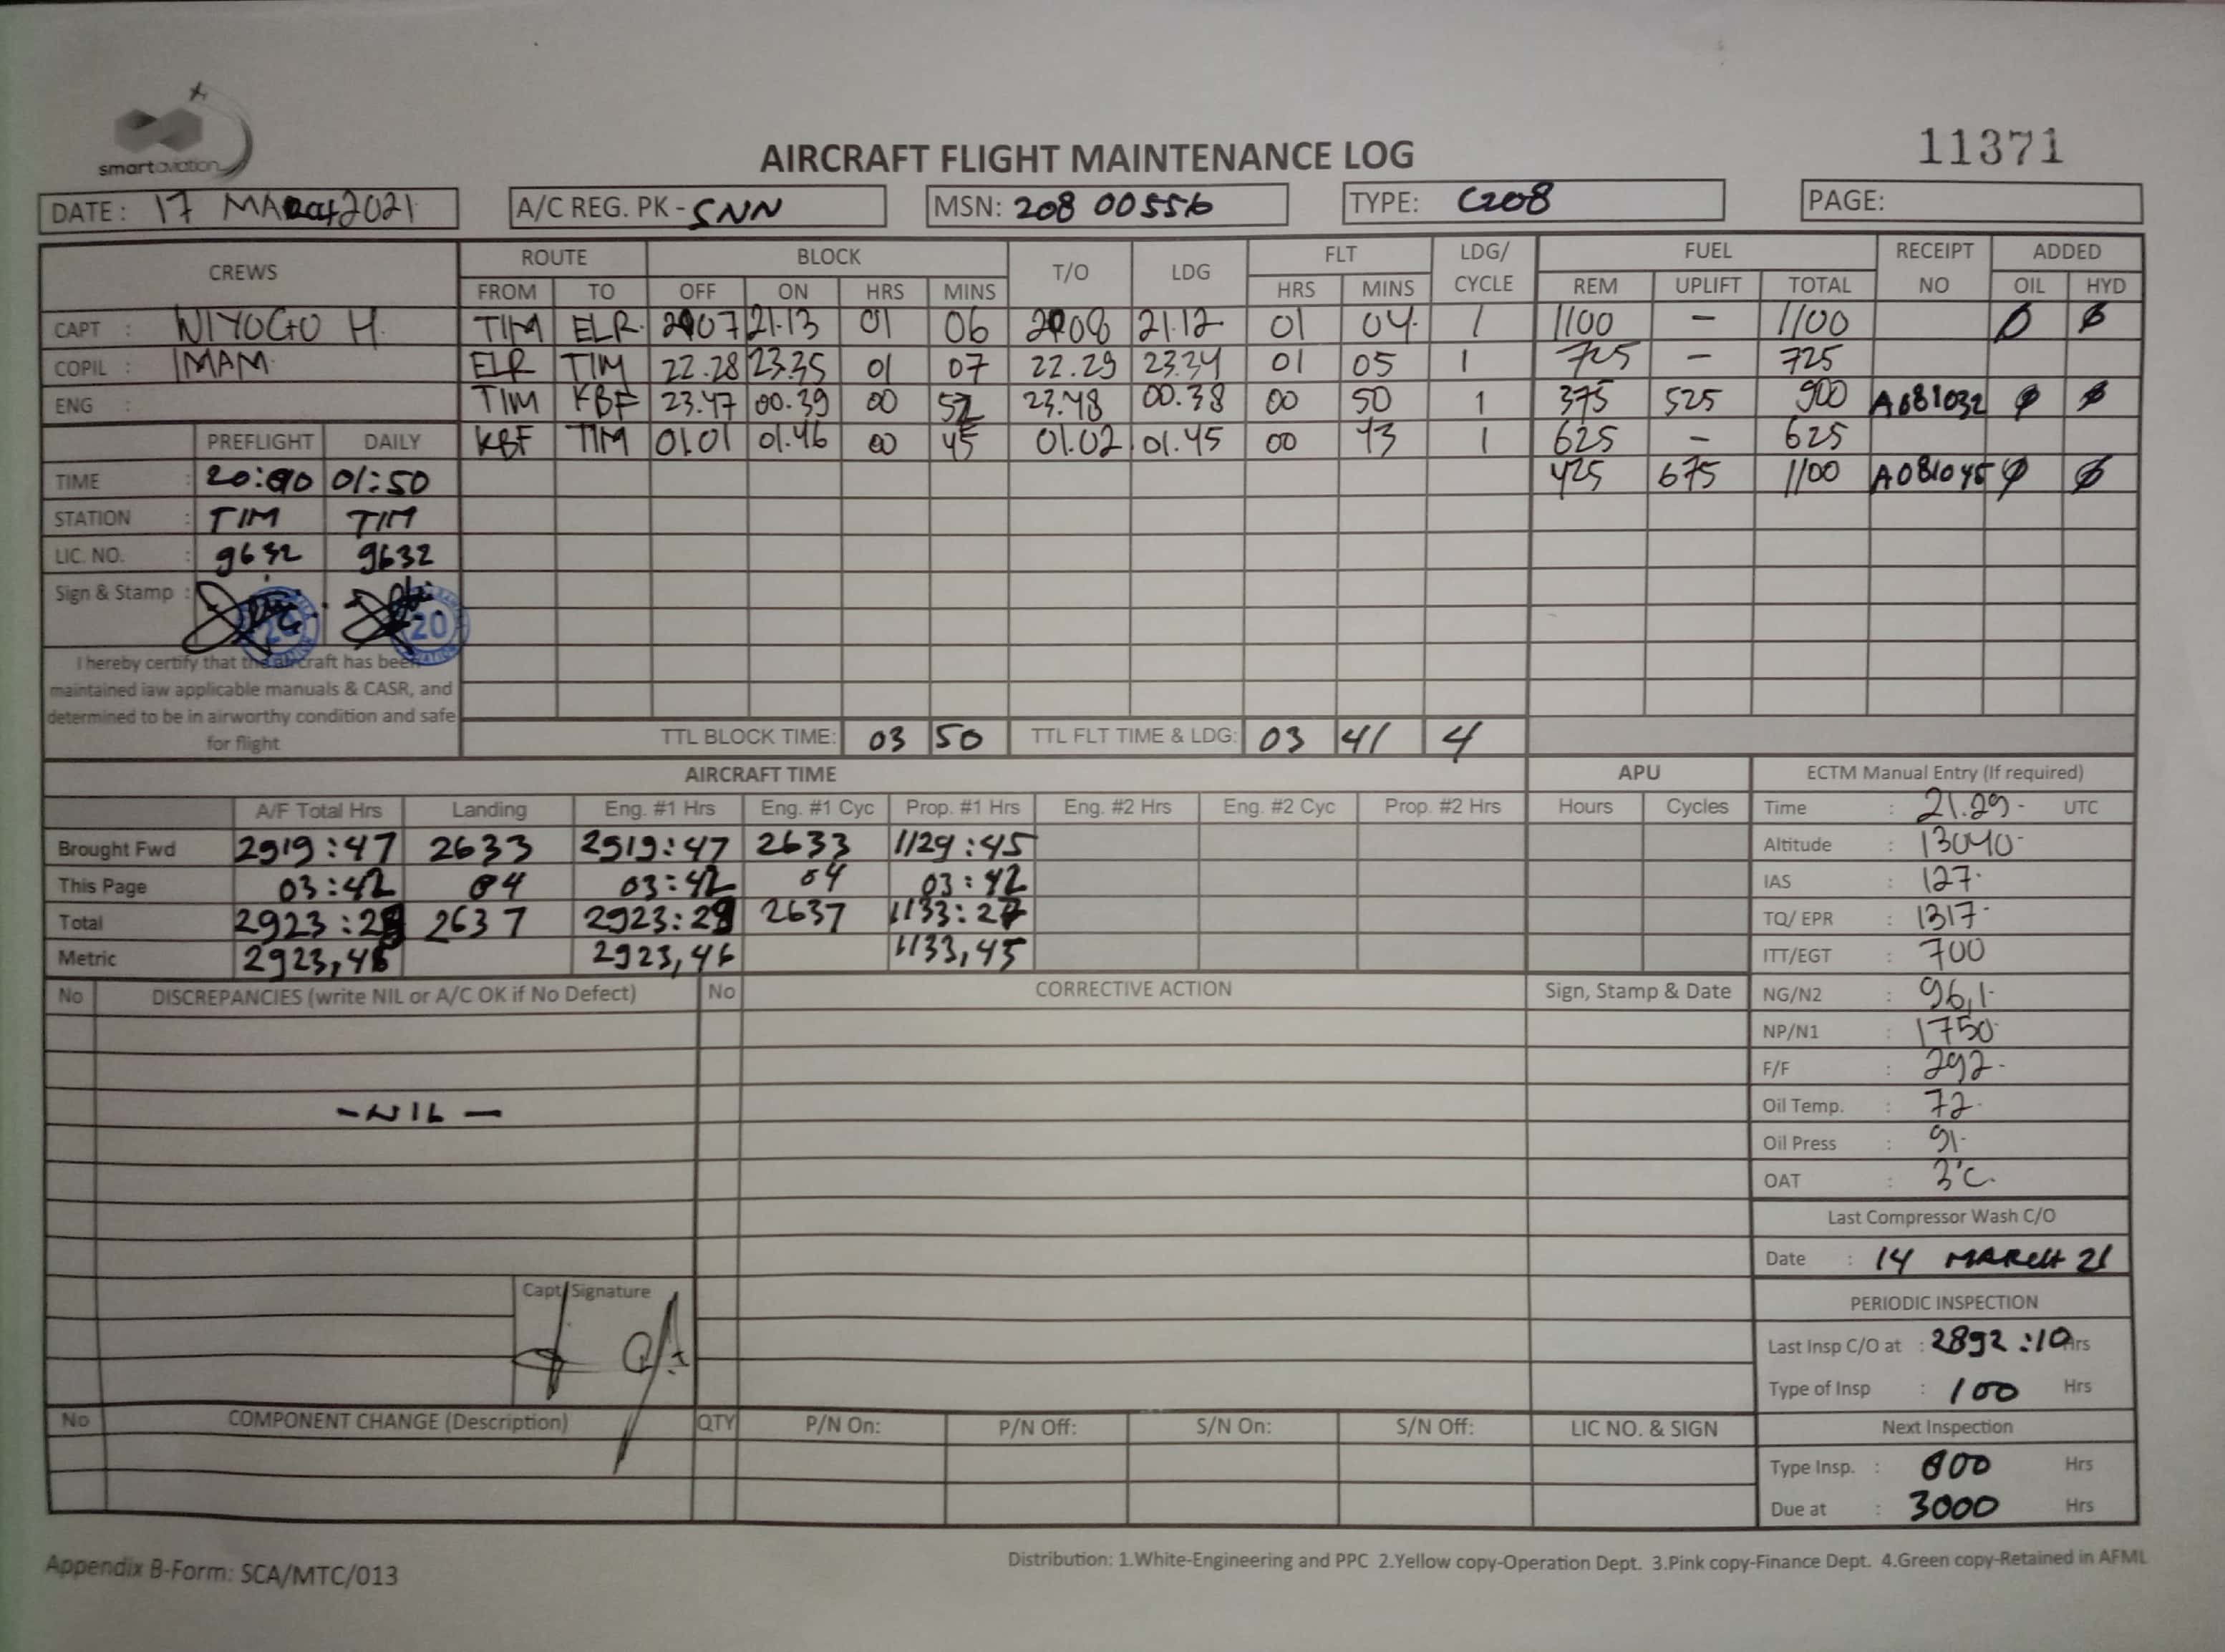 smartaviation
AIRCRAFT FLIGHT MAINTENANCE LOG
11371
DATE: 17 MARCH 2021 A/C REG. PK - SNN MSN: 208 00556 TYPE: C208 PAGE:
CREWS ROUTE BLOCK T/O LDG FLT LDG/ CYCLE FUEL RECEIPT NO ADDED
FROM TO OFF ON HRS MINS HRS MINS REM UPLIFT TOTAL OIL HYD
CAPT : WIYOGO H. TIM ELR 2007 21.13 01 06 2008 21.12 01 04 1 1100 - 1100 0 Ø
COPIL : IMAM ELR TIM 22.28 23.35 01 07 22.29 23.34 01 05 1 725 - 725
ENG : TIM KBF 23.47 00.39 00 52 23.48 00.38 00 50 1 375 525 900 A081032 Ø Ø
PREFLIGHT DAILY KBF TIM 01.01 01.46 00 45 01.02 01.45 00 43 1 625 - 625
TIME : 20:00 01:50 425 675 1100 A081045 Ø Ø
STATION : TIM TIM
LIC. NO. : 9632 9632
Sign & Stamp :
20
I hereby certify that the aircraft has been
maintained iaw applicable manuals & CASR, and
determined to be in airworthy condition and safe
for flight
TTL BLOCK TIME: 03 50 TTL FLT TIME & LDG: 03 41 4
AIRCRAFT TIME APU ECTM Manual Entry (If required)
A/F Total Hrs Landing Eng. #1 Hrs Eng. #1 Cyc Prop. #1 Hrs Eng. #2 Hrs Eng. #2 Cyc Prop. #2 Hrs Hours Cycles Time : 21.29 - UTC
Brought Fwd 2919:47 2633 2919:47 2633 1129:45 Altitude : 13040-
This Page 03:42 04 03:42 04 03:42 IAS : 127.
Total 2923:29 2637 2923:29 2637 1133:27 TQ/ EPR : 1317-
Metric 2923,48 2923,46 1133,45 ITT/EGT : 700
No DISCREPANCIES (write NIL or A/C OK if No Defect) No CORRECTIVE ACTION Sign, Stamp & Date NG/N2 : 96,1-
NP/N1 : 1750-
F/F : 292-
- NIL - Oil Temp. : 72-
Oil Press : 91-
OAT : 3°C.
Last Compressor Wash C/O
Date : 14 MARCH 21
Capt Signature
PERIODIC INSPECTION
Last Insp C/O at : 2892:10 Hrs
Type of Insp : 100 Hrs
No COMPONENT CHANGE (Description) QTY P/N On: P/N Off: S/N On: S/N Off: LIC NO. & SIGN Next Inspection
Type Insp. : 800 Hrs
Due at : 3000 Hrs
Appendix B-Form: SCA/MTC/013
Distribution: 1.White-Engineering and PPC 2.Yellow copy-Operation Dept. 3.Pink copy-Finance Dept. 4.Green copy-Retained in AFML